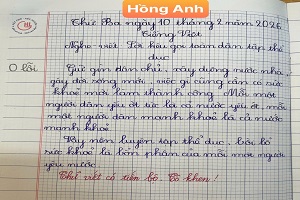 Hồng Anh
Thứ Ba ngày 10 tháng 2 năm 2026
Tiếng Việt
Nghe - viết: Lời kêu gọi toàn dân tập thể
dục
0 lỗi
Giữ gìn dân chủ, xây dựng nước nhà,
gây đời sống mới, việc gì cũng cần có sức
khoẻ mới làm thành công. Mỗi một
người dân yếu ớt tức là cả nước yếu ớt, mỗi
một người dân mạnh khoẻ là cả nước
mạnh khoẻ.
Vậy nên luyện tập thể dục, bồi bổ
sức khoẻ là bổn phận của mỗi một người
yêu nước.
Chữ viết có tiến bộ. Cô khen!